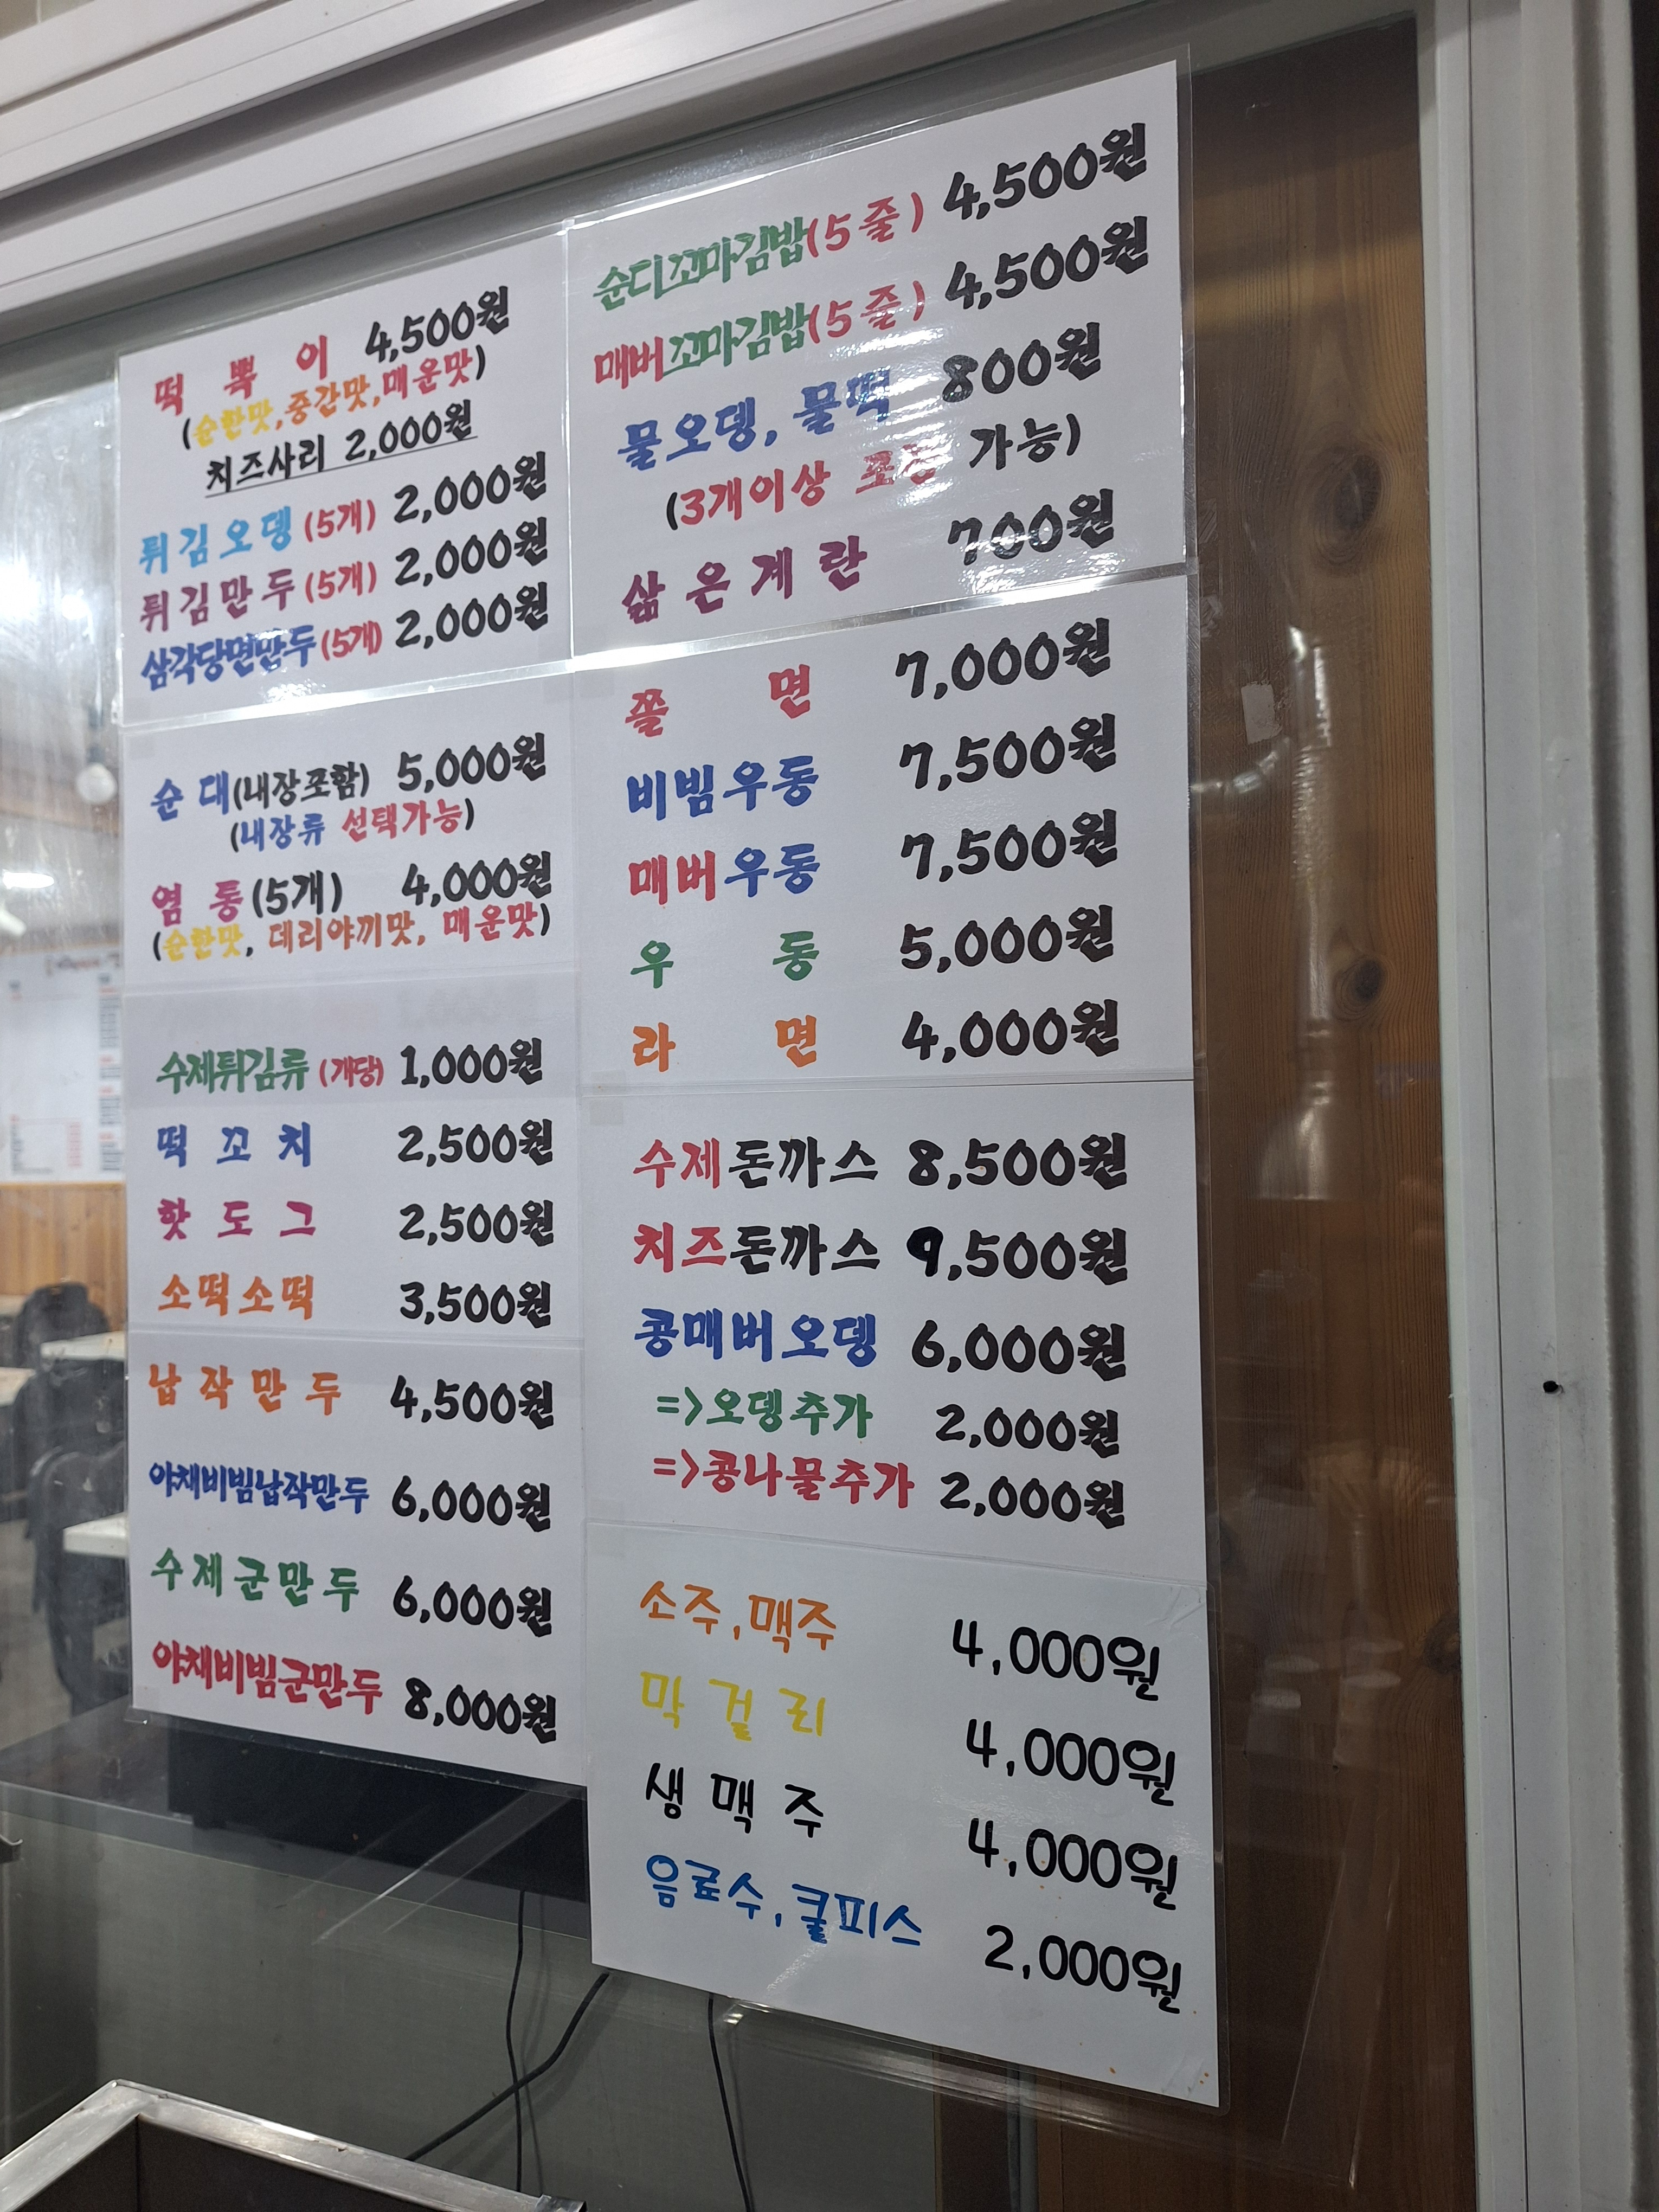 떡 볶 이 4,500원
(순한맛,중간맛,매운맛)
치즈사리 2,000원
튀김오뎅(5개) 2,000원
튀김만두(5개) 2,000원
삼각당면만두(5개) 2,000원
순 대(내장포함) 5,000원
(내장류 선택가능)
염 통(5개) 4,000원
(순한맛, 데리야끼맛, 매운맛)
수제튀김류(개당) 1,000원
떡 꼬 치 2,500원
핫 도 그 2,500원
소떡소떡 3,500원
납작만두 4,500원
야채비빔납작만두 6,000원
수제군만두 6,000원
야채비빔군만두 8,000원
순디꼬마김밥(5줄) 4,500원
매버꼬마김밥(5줄) 4,500원
물오뎅, 물떡 800원
(3개이상 포장 가능)
삶은계란 700원
쫄 면 7,000원
비빔우동 7,500원
매버우동 7,500원
우 동 5,000원
라 면 4,000원
수제돈까스 8,500원
치즈돈까스 9,500원
콩매버오뎅 6,000원
=>오뎅추가 2,000원
=>콩나물추가 2,000원
소주,맥주 4,000원
막걸리 4,000원
생맥주 4,000원
음료수,쿨피스 2,000원